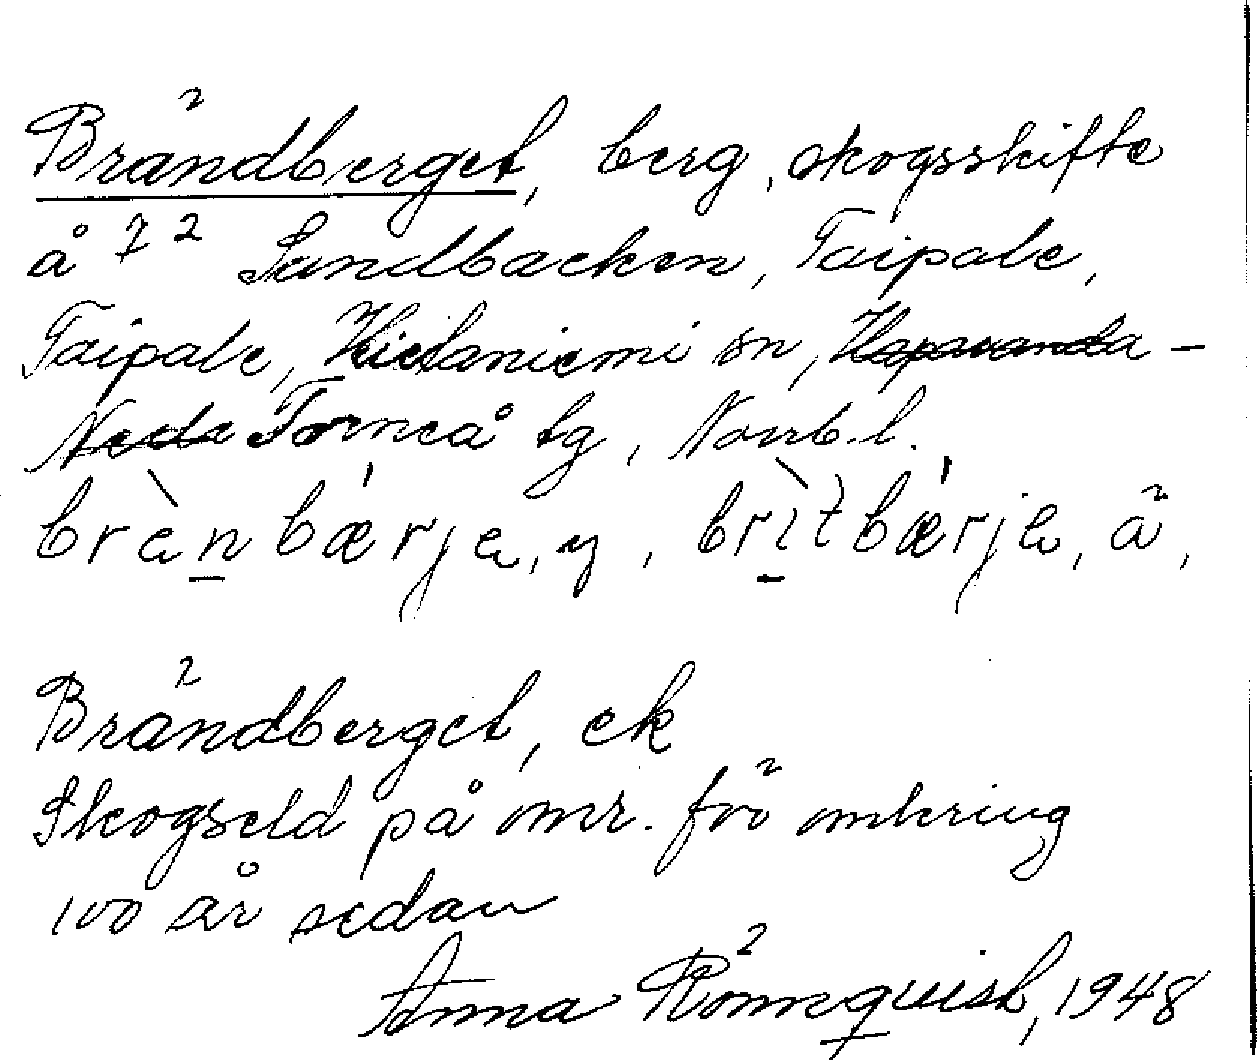 Brändberget, berg, skogsskifte
å 7² Sandbacken, Taipale,
Taipale, Hietaniemi sn, Haparanda -
Neder Torneå tg, Norrb.l.
brènbǽrje, y, brìtbǽrje, ä,
Brändberget, ek
Skogseld på omr. för omkring
100 år sedan
Anna Rönnquist, 1948